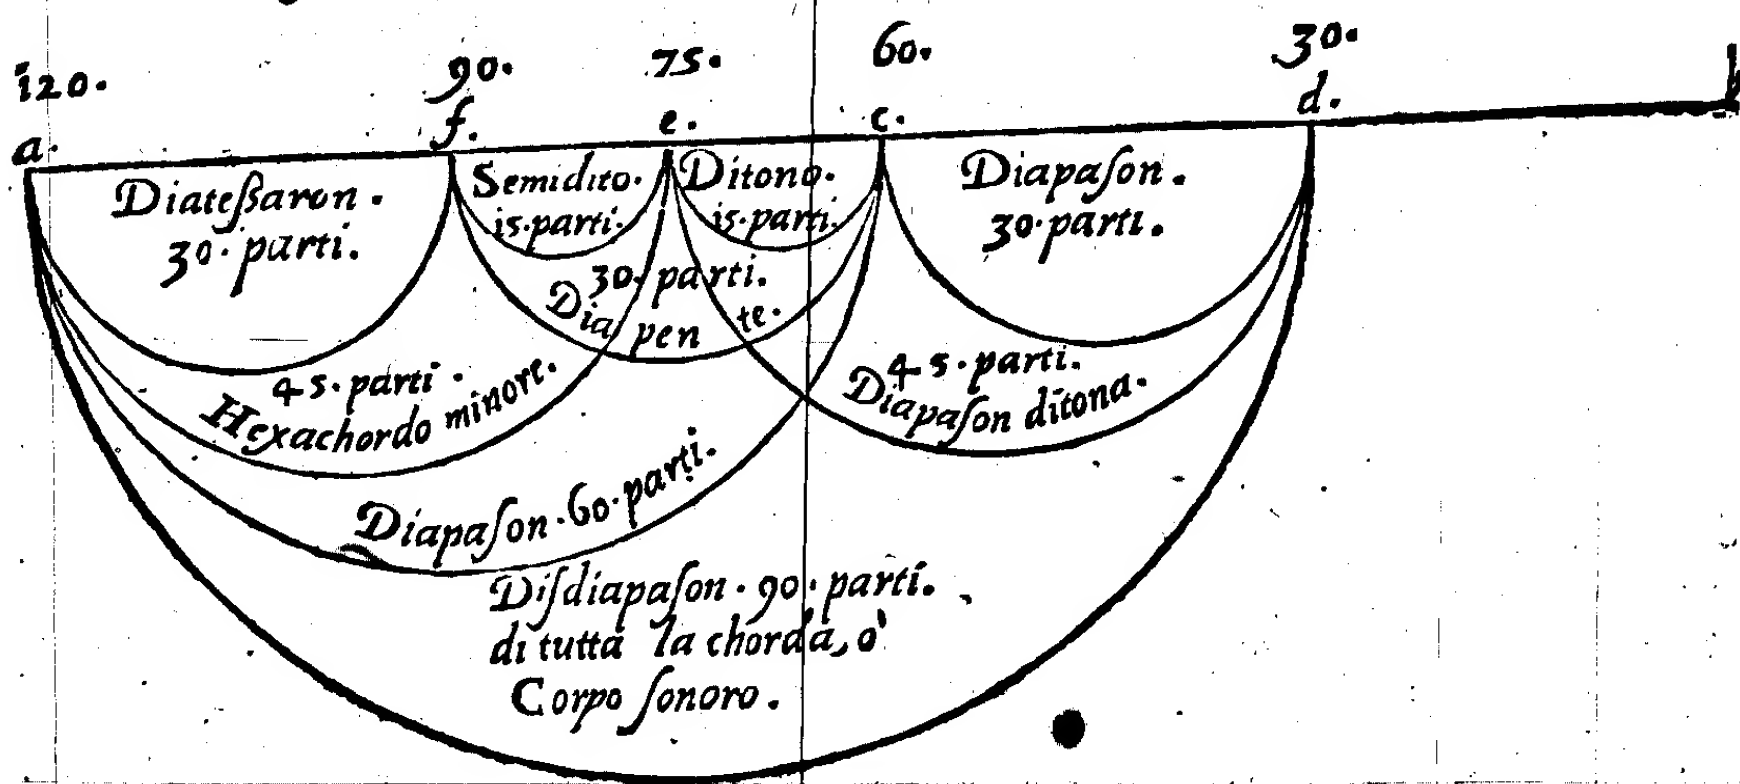 120. 90. 75. 60. 30.
a. f. e. c. d. b
Diateſsaron.
30. parti.
Semidito.
15. parti.
Ditono.
15. parti.
Diapaſon.
30. parti.
30. parti.
Diapente.
45. parti.
Hexachordo minore.
45. parti.
Diapaſon ditona.
Diapaſon. 60. parti.
Diſdiapaſon. 90. parti.
di tutta la chorda, ò
Corpo ſonoro.